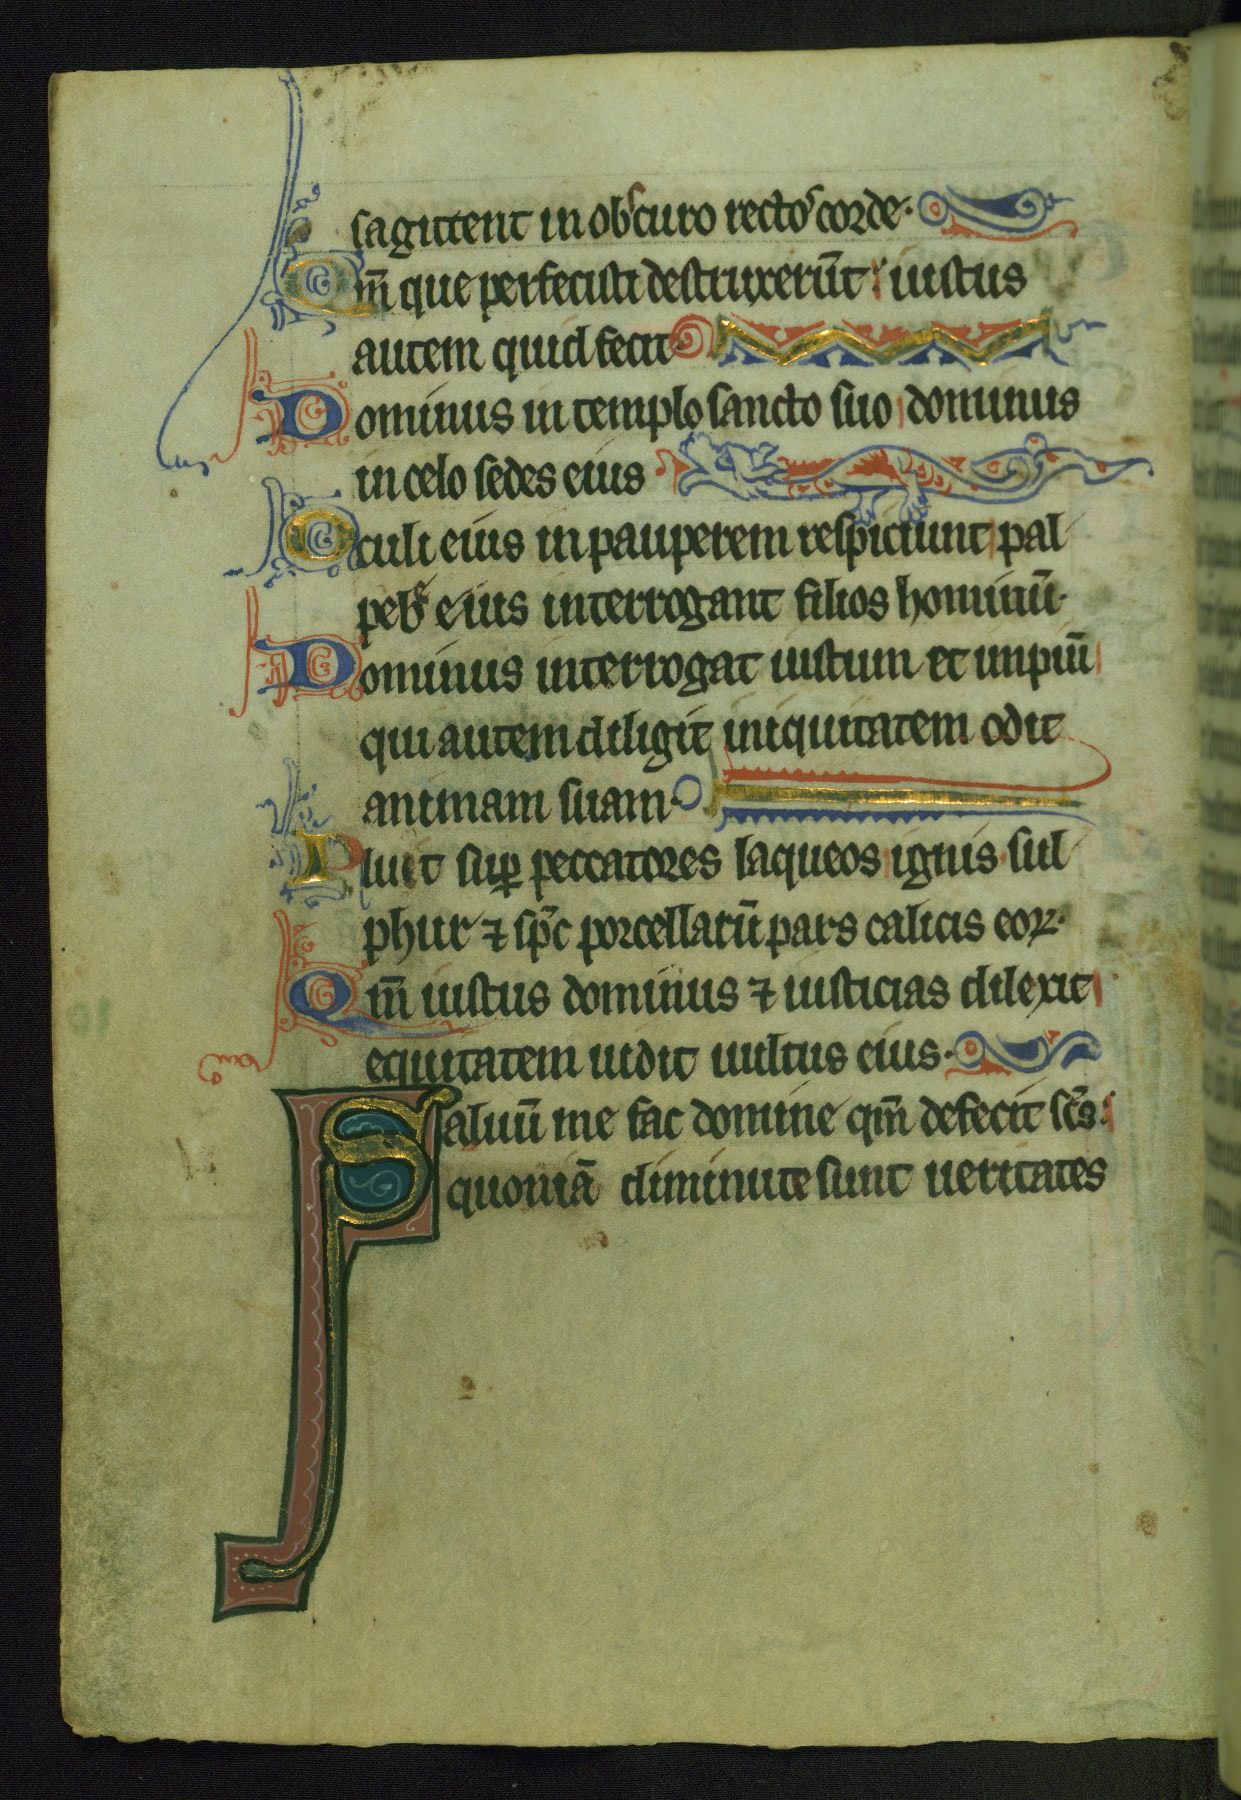 sagittent in obscuro rectos corde·
Qm̅ que perfecisti destruxeru̅t iustus
autem quid fecit·
Dominus in templo sancto suo dominus
in celo sedes eius
Oculi eius in pauperem respiciunt pal
pebre eius interrogant filios hominu̅·
Dominus interrogat iustum et impiu̅
qui autem diligit iniquitatem odit
animam suam·
Pluit suꝑ peccatores laqueos ignis sul
phur ⁊ sp̅c porcellaru̅ pars calicis eoꝝ·
Qm̅ iustus dominus ⁊ iusticias dilexit
equitatem uidit uultus eius·
Saluu̅ me fac domine qm̅ defecit sc̅s
quonia̅ diminute sunt ueritates